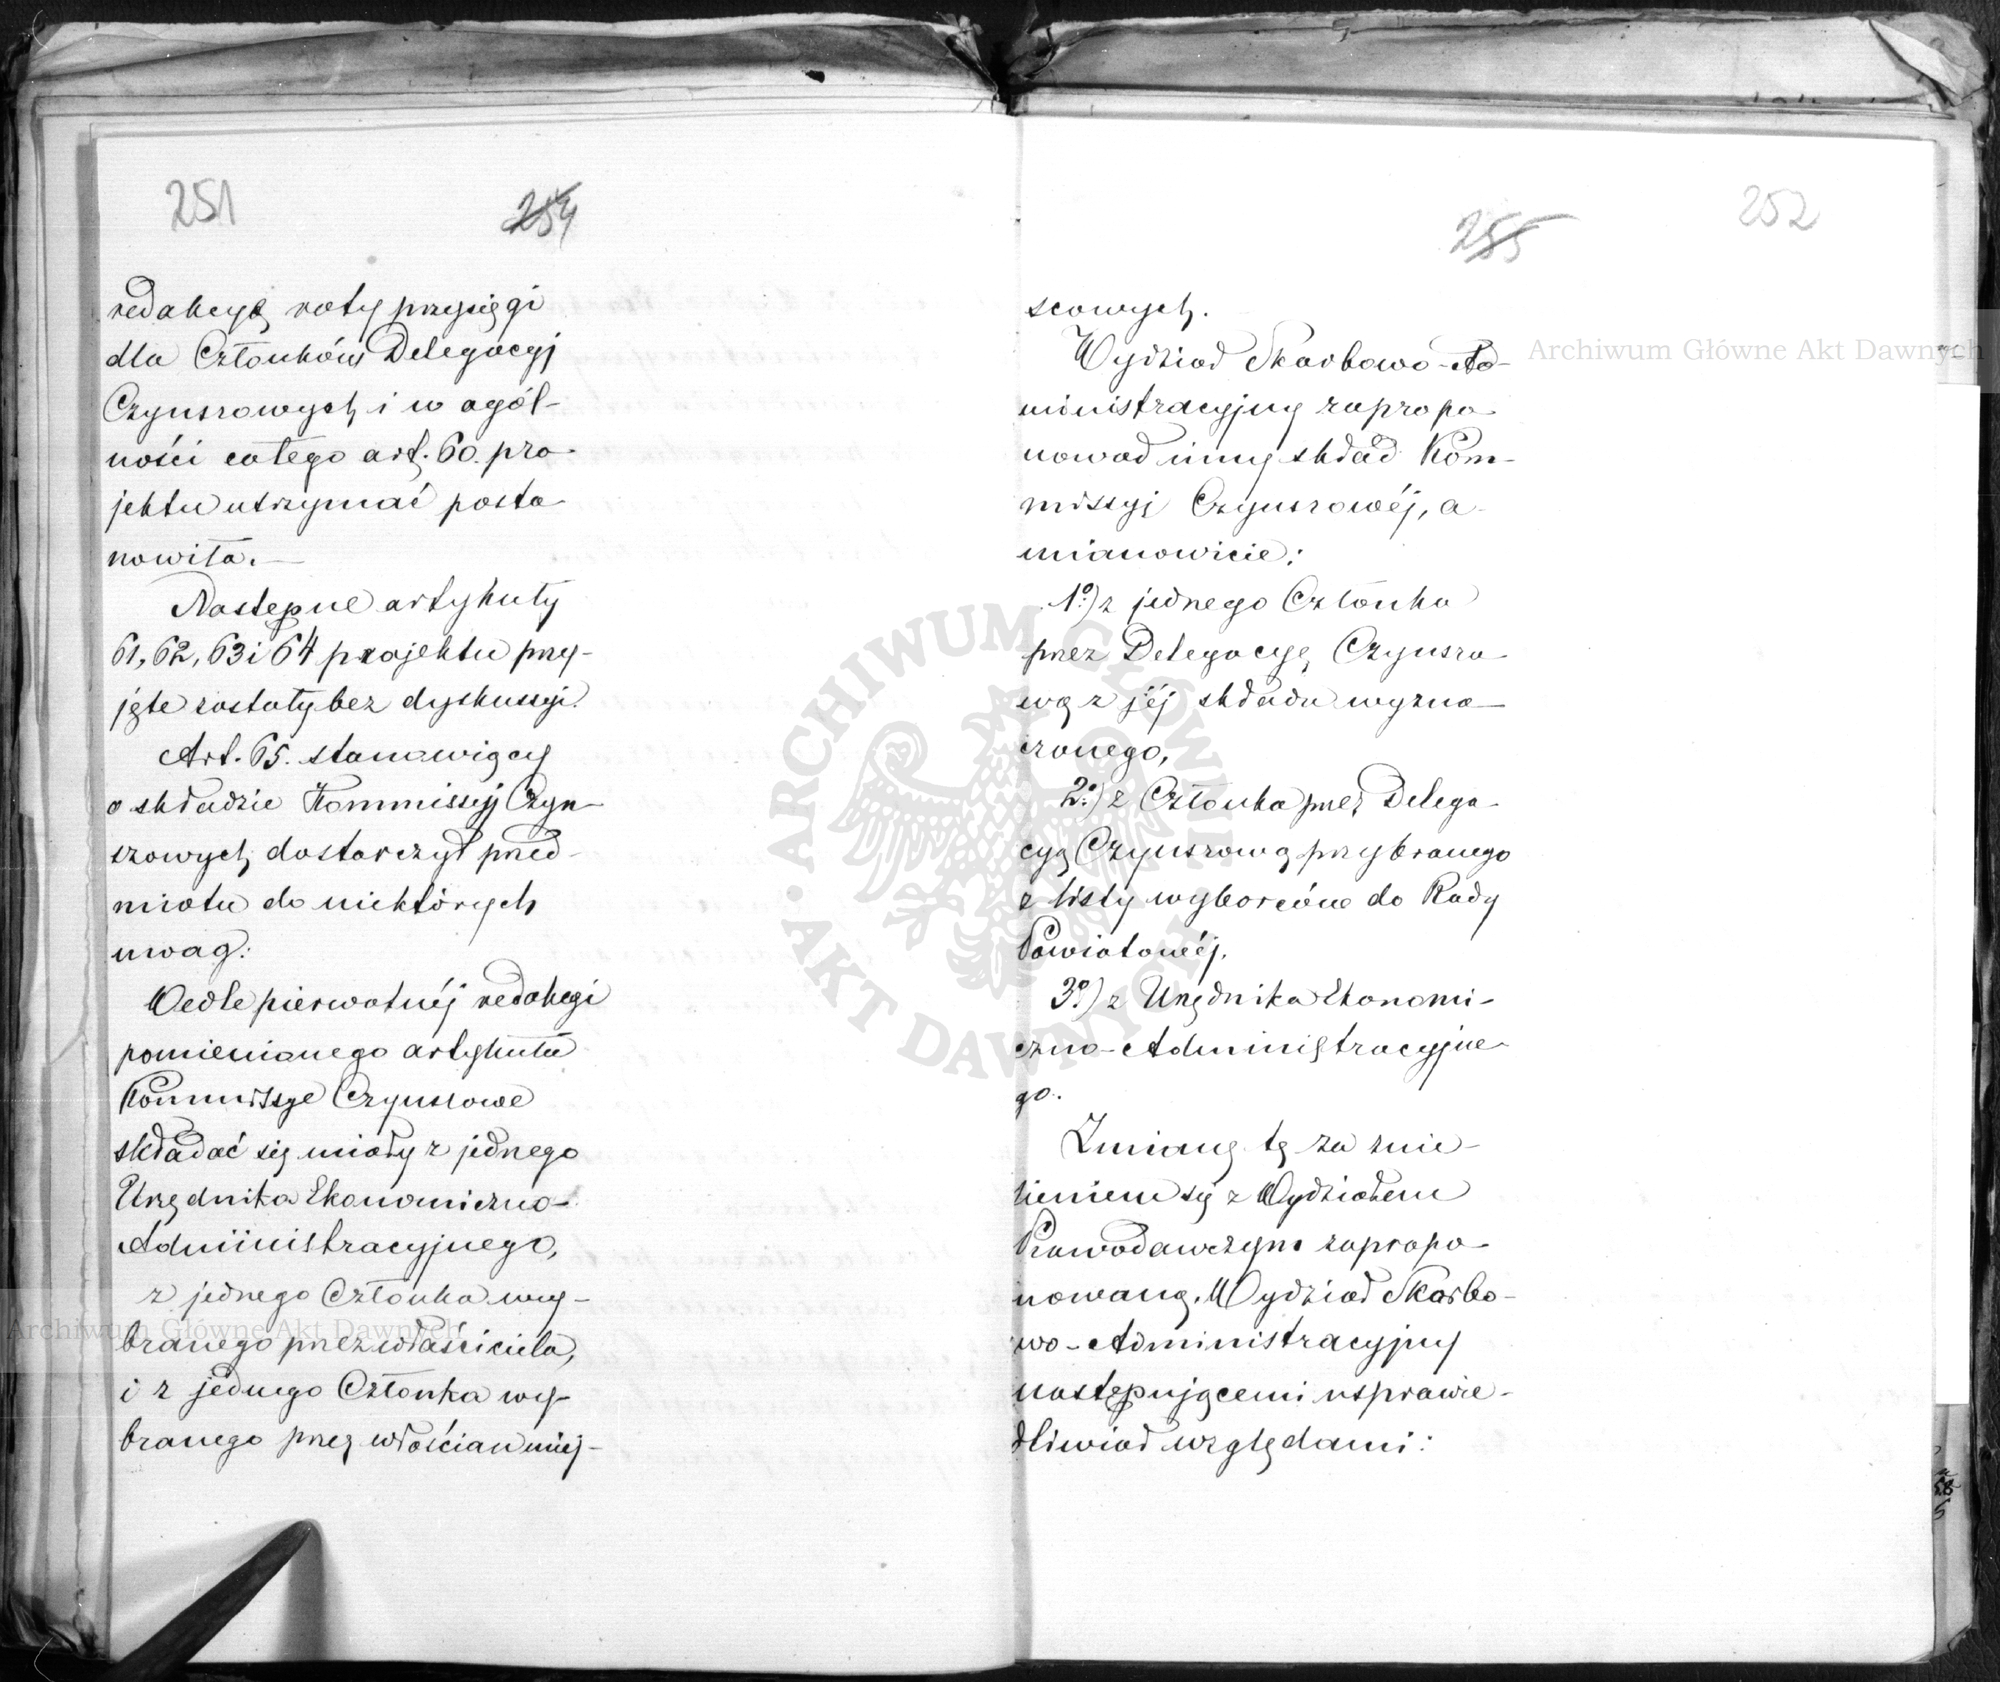 251
254
redakcyę roty przysięgi
dla Członków Delegacyj
Czynszowych i w ogól-
ności całego art. 60. pro-
jektu utrzymać posta-
nowiła. —
Następne artykuły
61, 62, 63 i 64 projektu przy-
jęte zostały bez dyskussyi.
Art. 65. stanowiący
o składzie Kommissyj Czyn-
szowych, dostarczył przed-
miotu do niektórych
uwag:
Wedle pierwotnéj redakcyi
pomienionego artykułu
Kommissye Czynszowe
składać się miały z jednego
Urzędnika Ekonomiczno-
Administracyjnego,
z jednego Członka wy-
branego przez właściciela,
i z jednego Członka wy-
branego przez włościan miej-
252
255
scowych.
Wydział Skarbowo-Ad-
ministracyjny zapropo-
nował inny skład Kom-
missyj Czynszowéj, a
mianowicie:
1º) z jednego Członka
przez Delegacyę Czynszo-
wą z jéj składu wyzna-
czonego,
2º) z Członka przez Delega-
cyą Czynszową przybranego
z listy wyborców do Rady
Powiatowéj.
3º) z Urzędnika Ekonomi-
czno-Administracyjne-
go.
Zmianę tę za znie-
sieniem się z Wydziałem
Prawodawczym zapropo-
nowaną, Wydział Skarbo-
wo-Administracyjny
następującemi usprawie-
dliwiał względami:
Archiwum Główne Akt Dawnych
ARCHIWUM GŁÓWNE · AKT DAWNYCH ·
Archiwum Główne Akt Dawnych